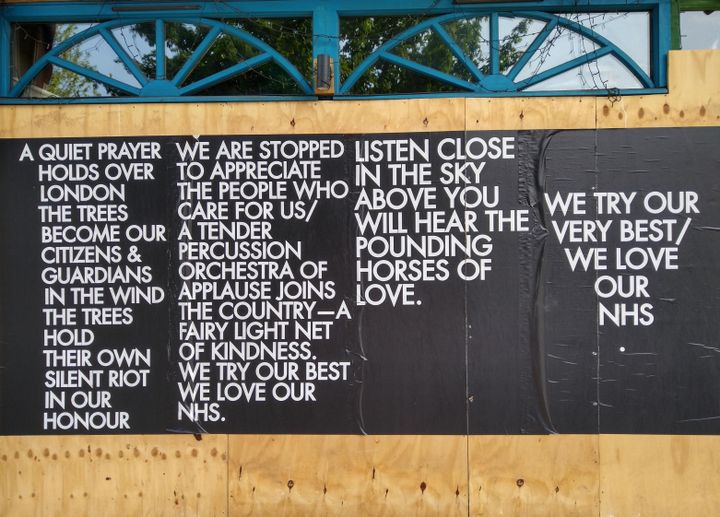 A QUIET PRAYER
HOLDS OVER
LONDON
THE TREES
BECOME OUR
CITIZENS &
GUARDIANS
IN THE WIND
THE TREES
HOLD
THEIR OWN
SILENT RIOT
IN OUR
HONOUR
WE ARE STOPPED
TO APPRECIATE
THE PEOPLE WHO
CARE FOR US/
A TENDER
PERCUSSION
ORCHESTRA OF
APPLAUSE JOINS
THE COUNTRY—A
FAIRY LIGHT NET
OF KINDNESS.
WE TRY OUR BEST
WE LOVE OUR
NHS.
LISTEN CLOSE
IN THE SKY
ABOVE YOU
WILL HEAR THE
POUNDING
HORSES OF
LOVE.
WE TRY OUR
VERY BEST/
WE LOVE
OUR
NHS
.